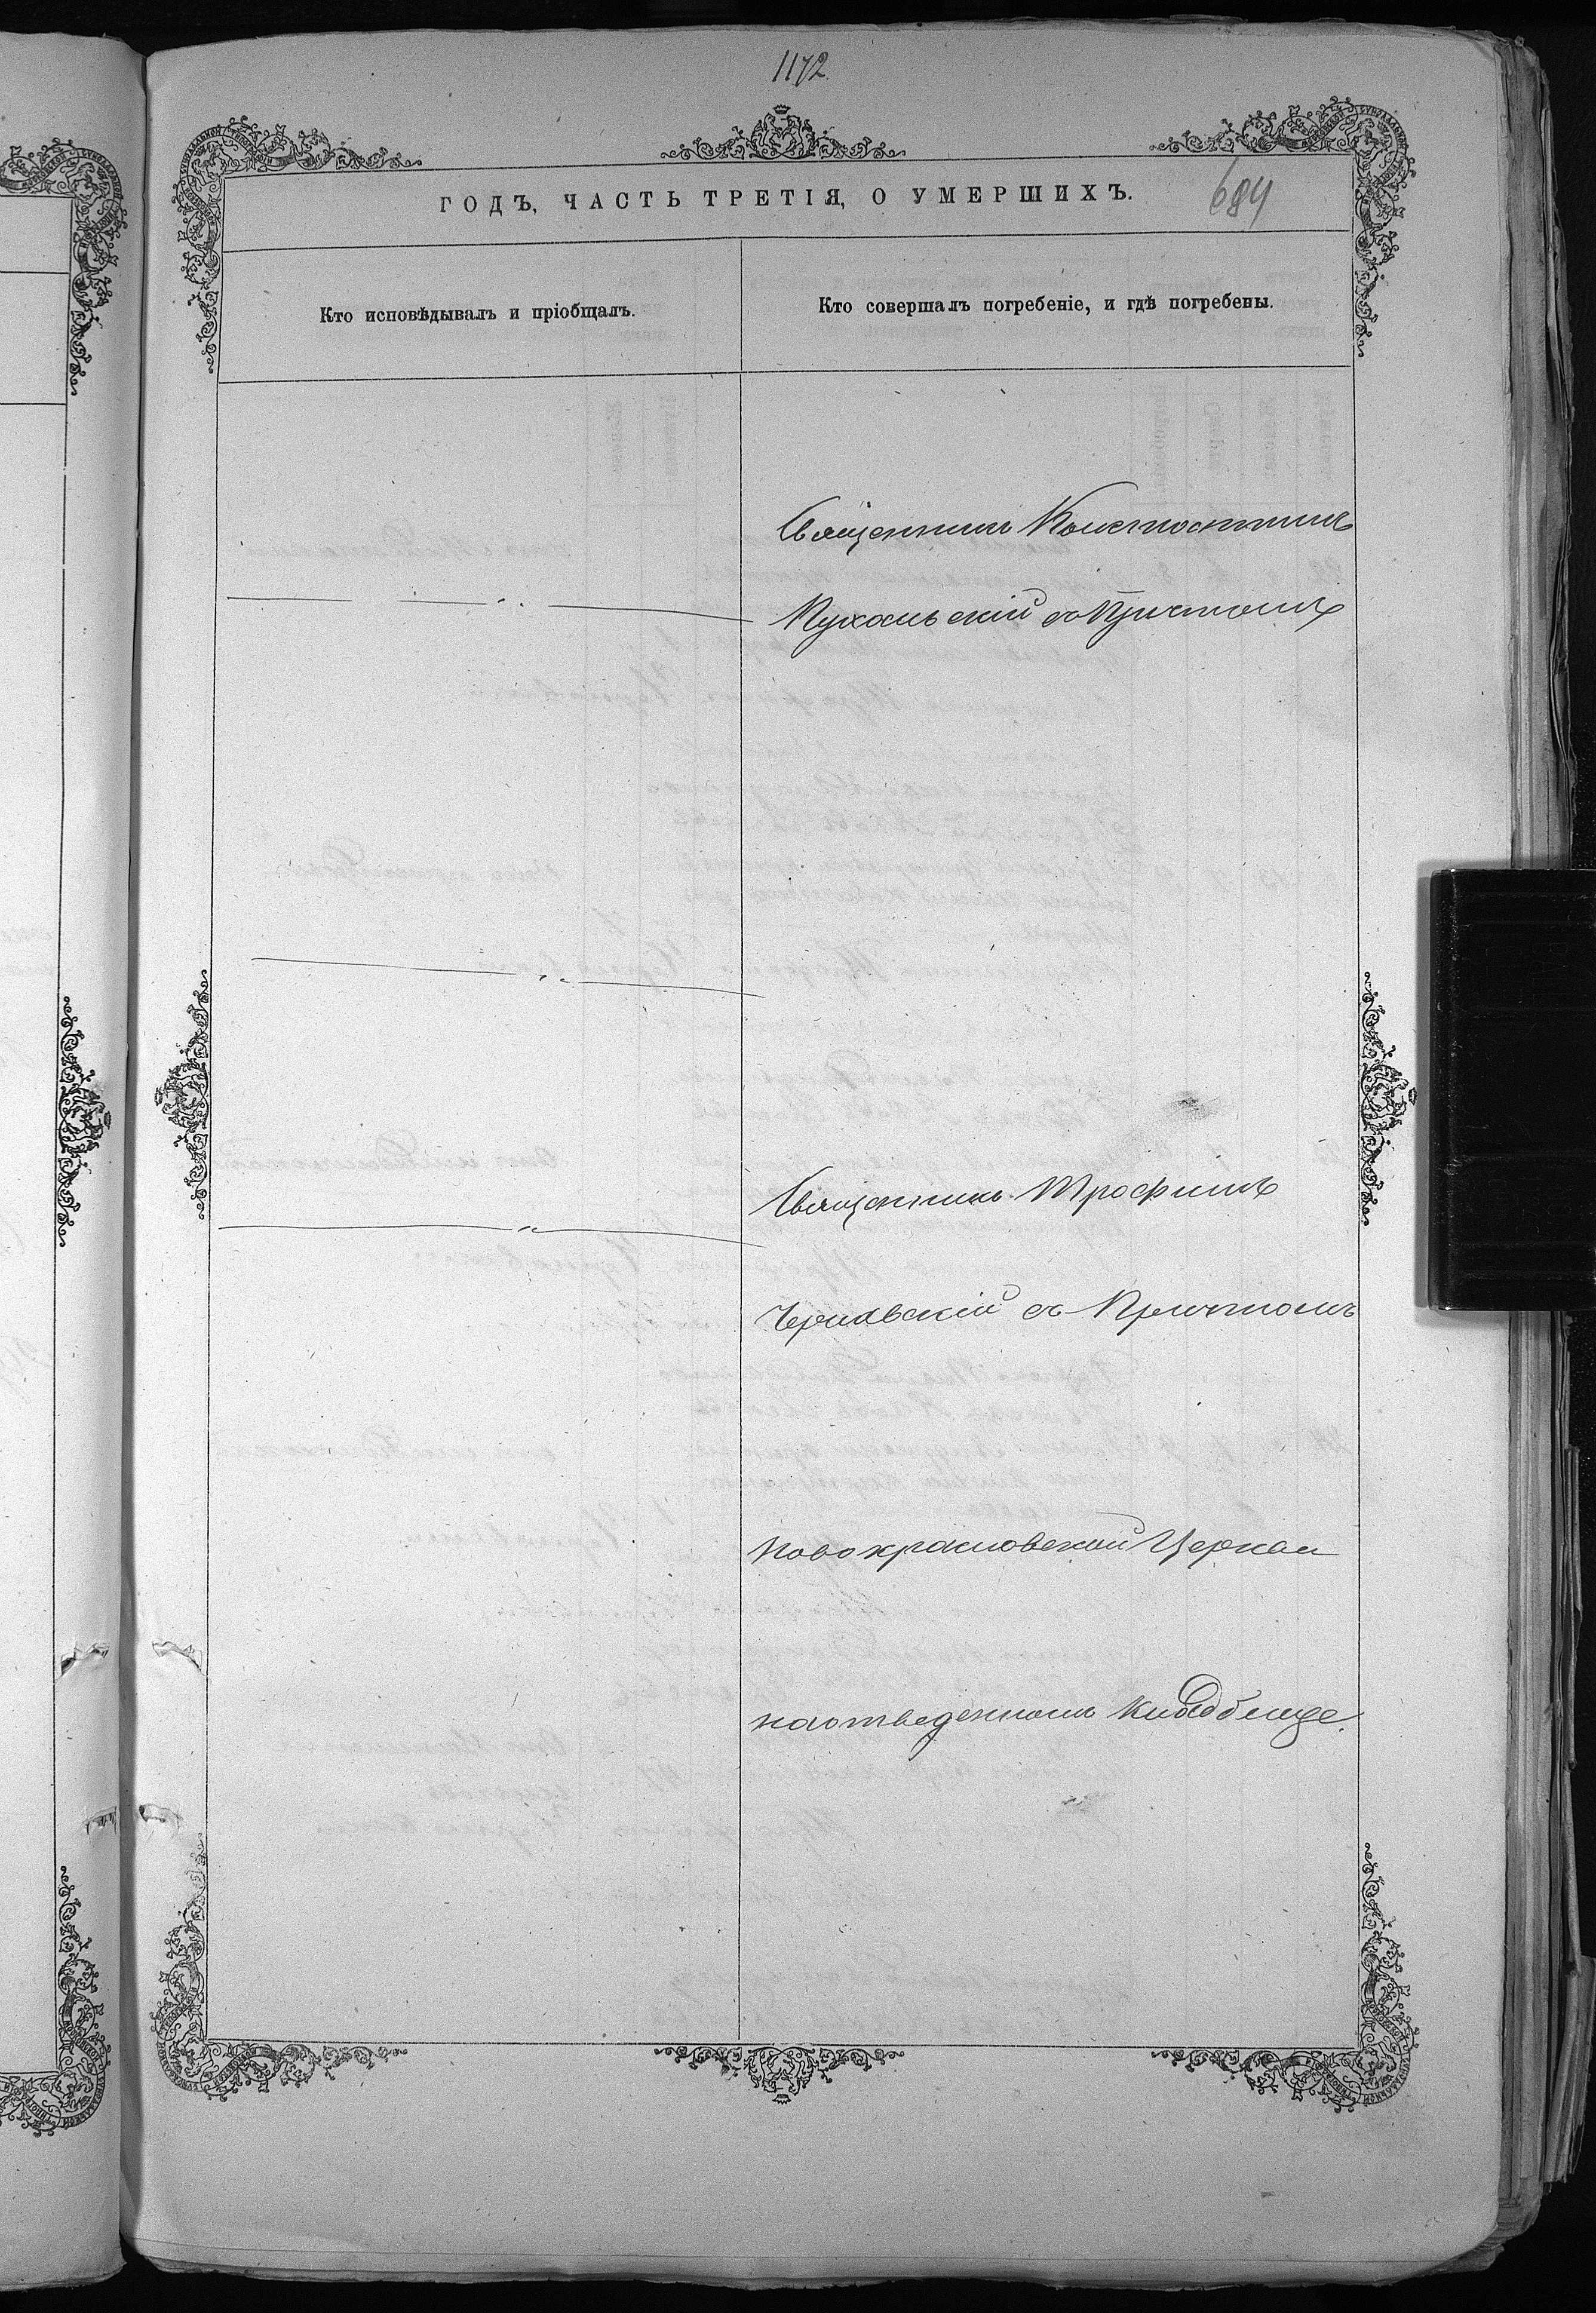 1172
ГОДЪ, ЧАСТЬ ТРЕТІЯ, О УМЕРШИХЪ.
684
Кто исповѣдывалъ и пріобщалъ.
Кто совершалъ погребеніе, и гдѣ погребены.
Священникъ Константинъ
Пухальскій съ Причтомъ
Священникъ Трофимъ
Чернявскій съ Причтомъ
Новокрасновской Церкви
на отведенномъ Кладбище.